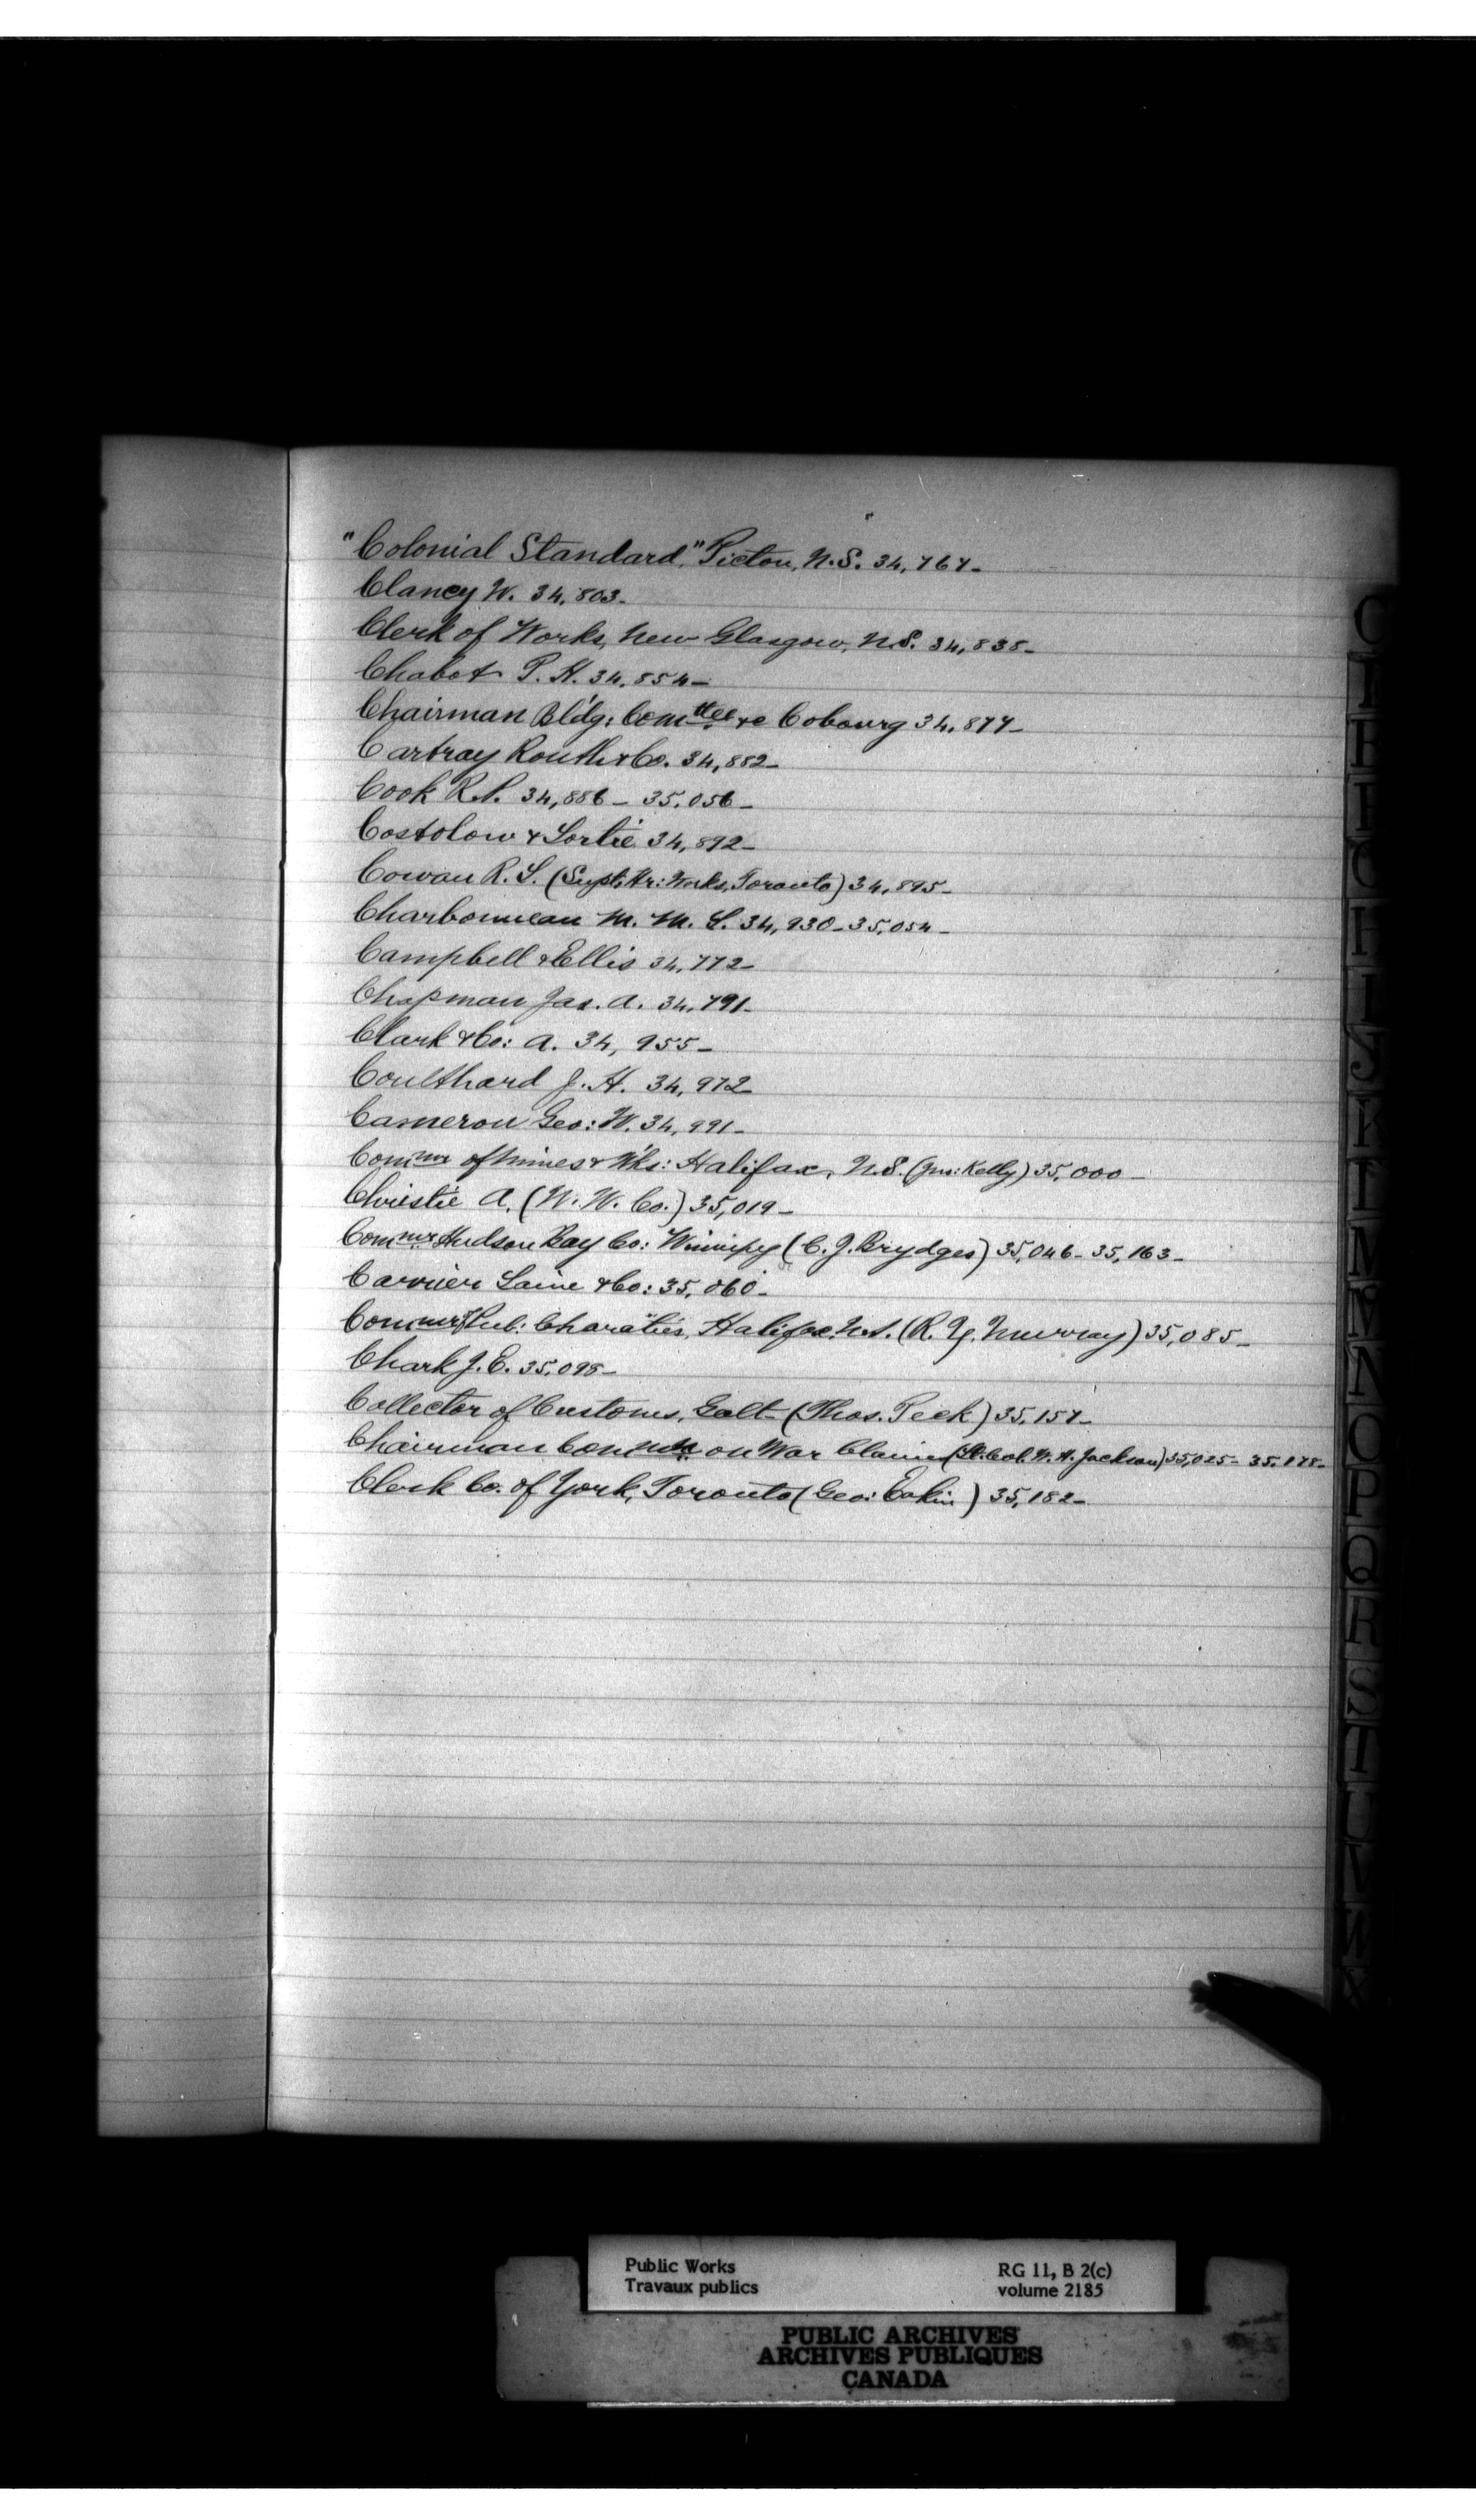 "Colonial Standard," Pictou, N.S. 34,767-
Clancy W. 34,803-
Clerk of Works, New Glasgow, N.S. 34,838-
Chabot P. H. 34,854-
Chairman Bldg: Comttee &c Cobourg 34,877-
Cartray Routh & Co. 34,882-
Cook R.P. 34,886- 35,056-
Costolow & Sortie 34,892-
Cowan R. S. (Supt. Wr: Works, Toronto) 34,895-
Charbonneau M. M. L. 34,930-35,054-
Campbell & Ellis 34,772-
Chapman Jas. A. 34,791-
Clark & Co: A. 34,955-
Coulthard J. H. 34,972
Cameron Geo: W. 34,991-
Commr of Mines & Wks: Halifax, N.S. (Jno: Kelly) 35,000-
Christie A. (W. W. Co.) 35,019-
Commr Hudson Bay Co: Winnipg (C. J. Brydges) 35,046- 35,163-
Carrier Laine & Co: 35,060-
Commr Pub: Charaties, Halifax N.S. (R. Murray) 35,085-
Chark J. E. 35,098-
Collector of Customs, Galt (Thos. Peck) 35,157-
Chairman on War Claims (Lt. Col. W. H. Jackson) 35,025- 35,178-
Clerk Co. of York, Toronto (Geo: Eakin) 35,182-
C
H
I
J
K
L
M
N
O
P
Q
R
S
T
U
V
W
X
Public Works RG 11, B 2(c)
Travaux publics volume 2185
PUBLIC ARCHIVES
ARCHIVES PUBLIQUES
CANADA